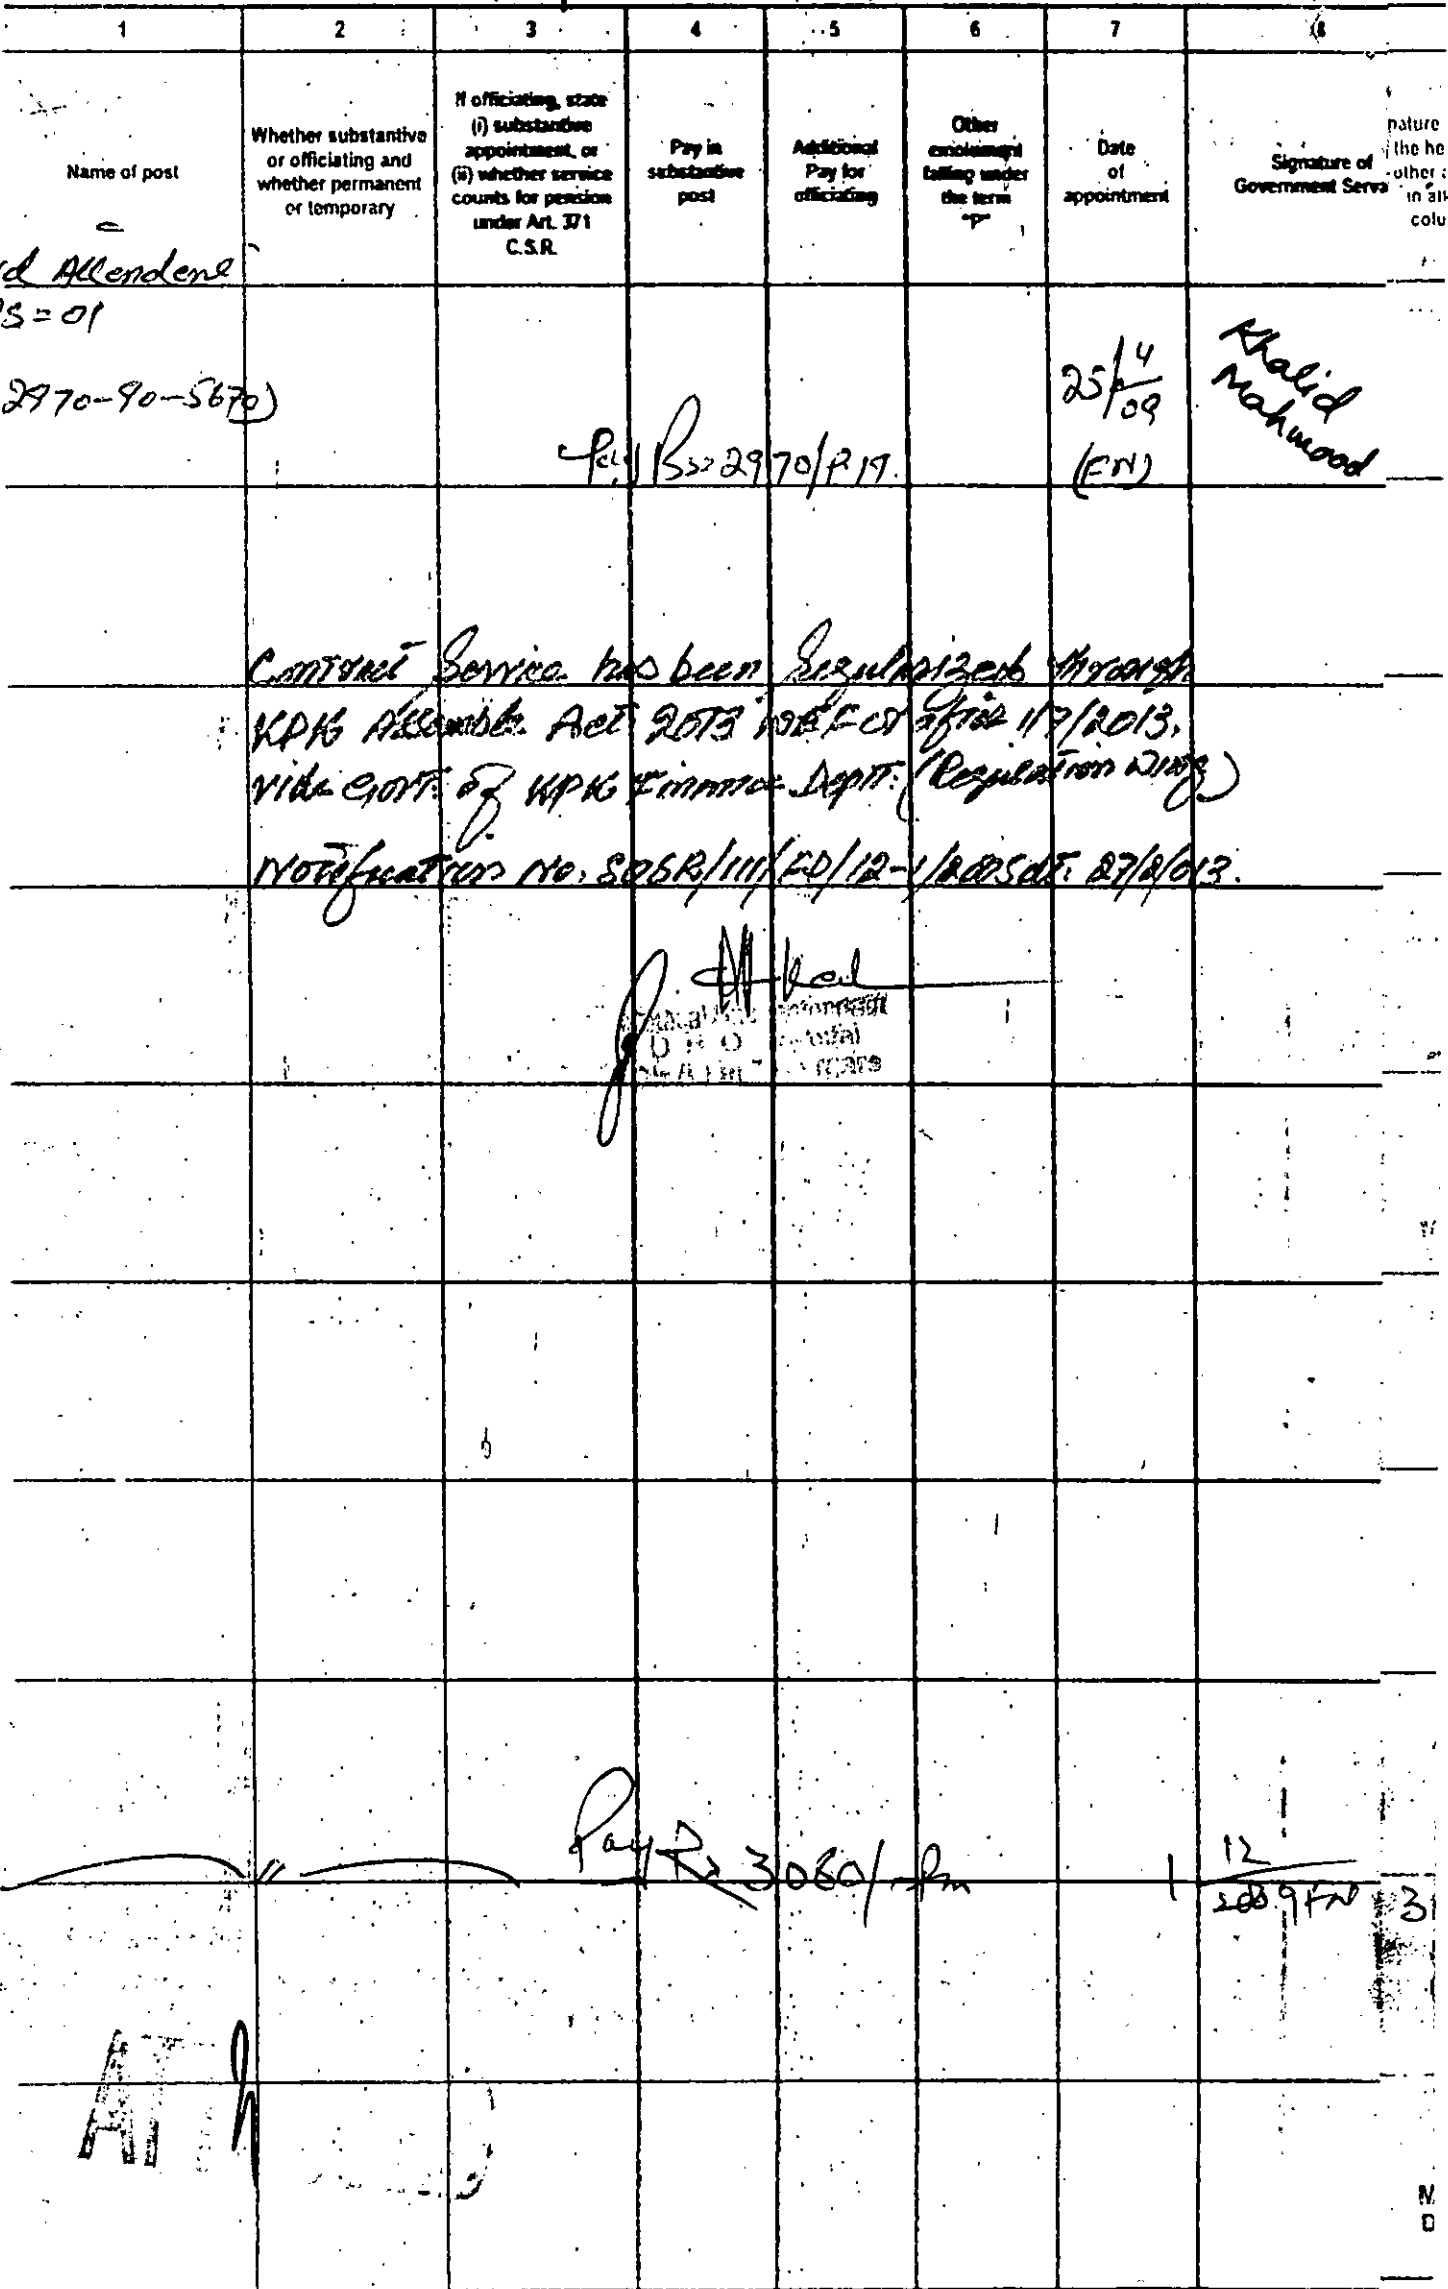 1 2 3 4 5 6 7 8
Name of post
Whether substantive
or officiating and
whether permanent
or temporary
If officiating, state
(i) substantive
appointment, or
(ii) whether service
counts for pension
under Art. 371
C.S.R.
Pay in
substantive
post
Additional
Pay for
officiating
Other
emolument
falling under
the term
"P"
Date
of
appointment
Signature of
Government Serva
nature
the he
other a
in
colu
d Attendent
S=01
2970-90-5670)
Pay Rs 2970/P.M.
25/4/09
(FN)
Khalid
Mahmood
Contract Service has been Regularized through
KPK Act 2013 1/7/2013.
vide Govt: of KPK Finance Deptt: (Regulation Wing)
Notification No. SOSR/III/FD/12-1/2005 dt:
Pay Rs 3060/-Pm
1 12
2009 FN
31
AT